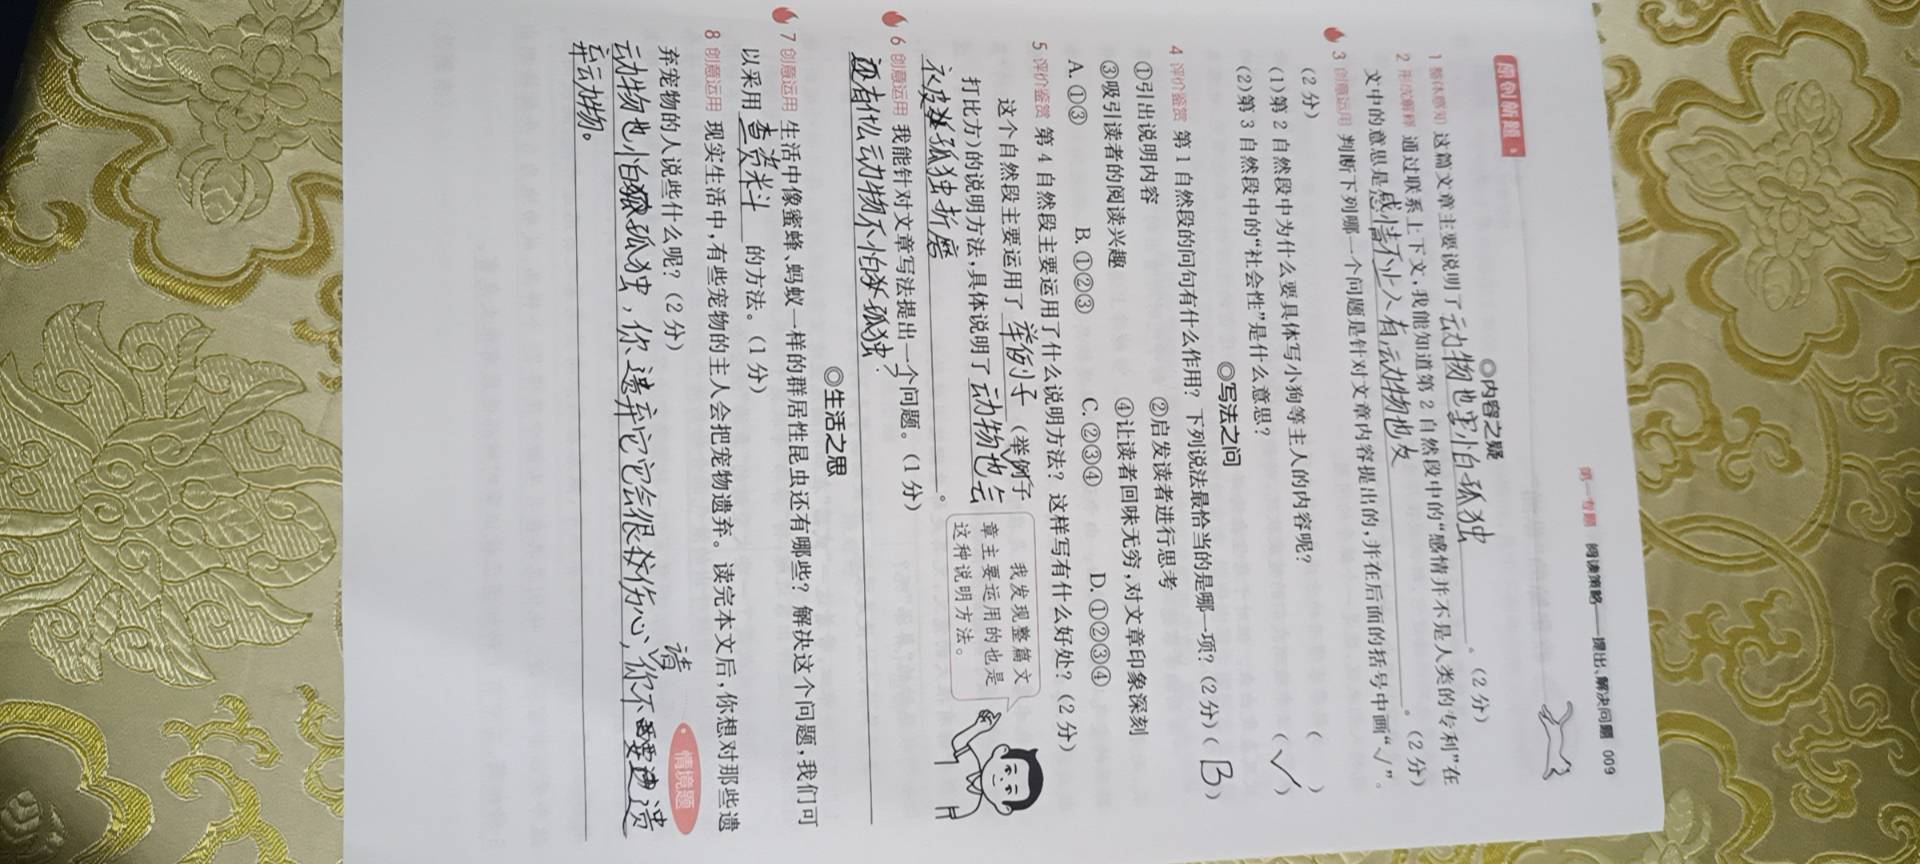 第一专题 阅读策略——提出、解决问题 009
原创新题
◎内容之疑
1 整体感知 这篇文章主要说明了动物也害怕孤独。(2分)
2 形成解释 通过联系上下文,我能知道第2自然段中的“感情并不是人类的专利”在
文中的意思是感情不止人有动物也友。(2分)
3 创意运用 判断下列哪一个问题是针对文章内容提出的,并在后面的括号中画“√”。
(2分)
(1)第2自然段中为什么要具体写小狗等主人的内容呢? ( )
(2)第3自然段中的“社会性”是什么意思? (√)
◎写法之问
4 评价鉴赏 第1自然段的问句有什么作用? 下列说法最恰当的是哪一项? (2分)(B)
①引出说明内容 ②启发读者进行思考
③吸引读者的阅读兴趣 ④让读者回味无穷,对文章印象深刻
A.①③ B.①②③ C.②③④ D.①②③④
5 评价鉴赏 第4自然段主要运用了什么说明方法? 这样写有什么好处? (2分)
这个自然段主要运用了举例子(举例子
打比方)的说明方法,具体说明了动物也会
孤独折磨。
我发现整篇文
章主要运用的也是
这种说明方法。
6 创意运用 我能针对文章写法提出一个问题。(1分)
还有什么动物不怕孤独?
◎生活之思
7 创意运用 生活中像蜜蜂、蚂蚁一样的群居性昆虫还有哪些? 解决这个问题,我们可
以采用查资料 的方法。(1分)
8 创意运用 现实生活中,有些宠物的主人会把宠物遗弃。读完本文后,你想对那些遗
弃宠物的人说些什么呢? (2分)
情境题
动物也怕孤独,你遗弃它它会很伤心,请你不要遗
弃动物。